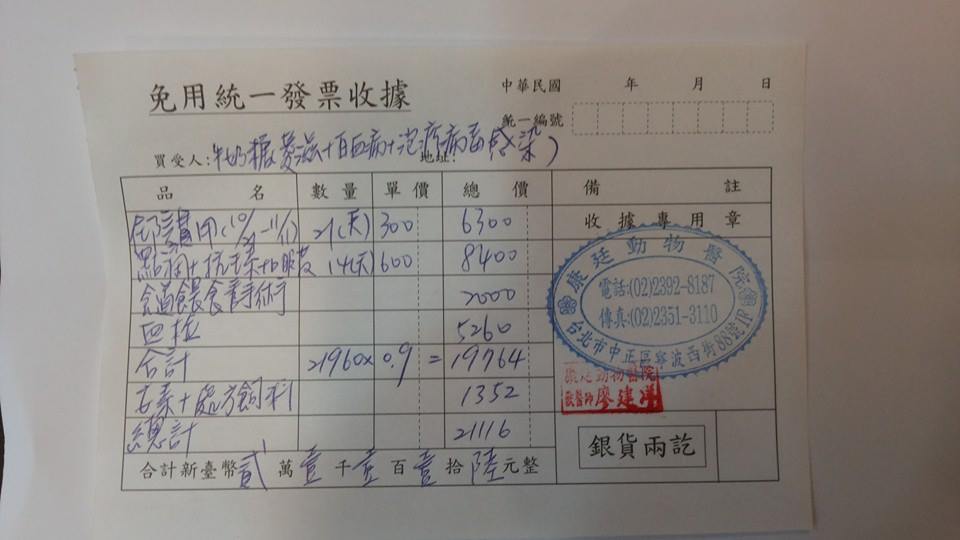 免用統一發票收據
中華民國 年 月 日
統一編號
買受人: 地址:
品名 數量 單價 總價 備註
收據專用章
住院費用 21(天) 300 6300
點滴+抗生素+ 14(天) 600 8400
食道餵食 手術 2000
血檢 5260
合計 21960 x 0.9 = 19764
處方飼料 1352
總計 21116
合計新臺幣貳萬壹千壹百壹拾陸元整
銀貨兩訖
康廷動物醫院
電話:(02)2392-8187
傳真:(02)2351-3110
台北市中正區寧波西街88號1F
康廷動物醫院
獸醫師 廖建